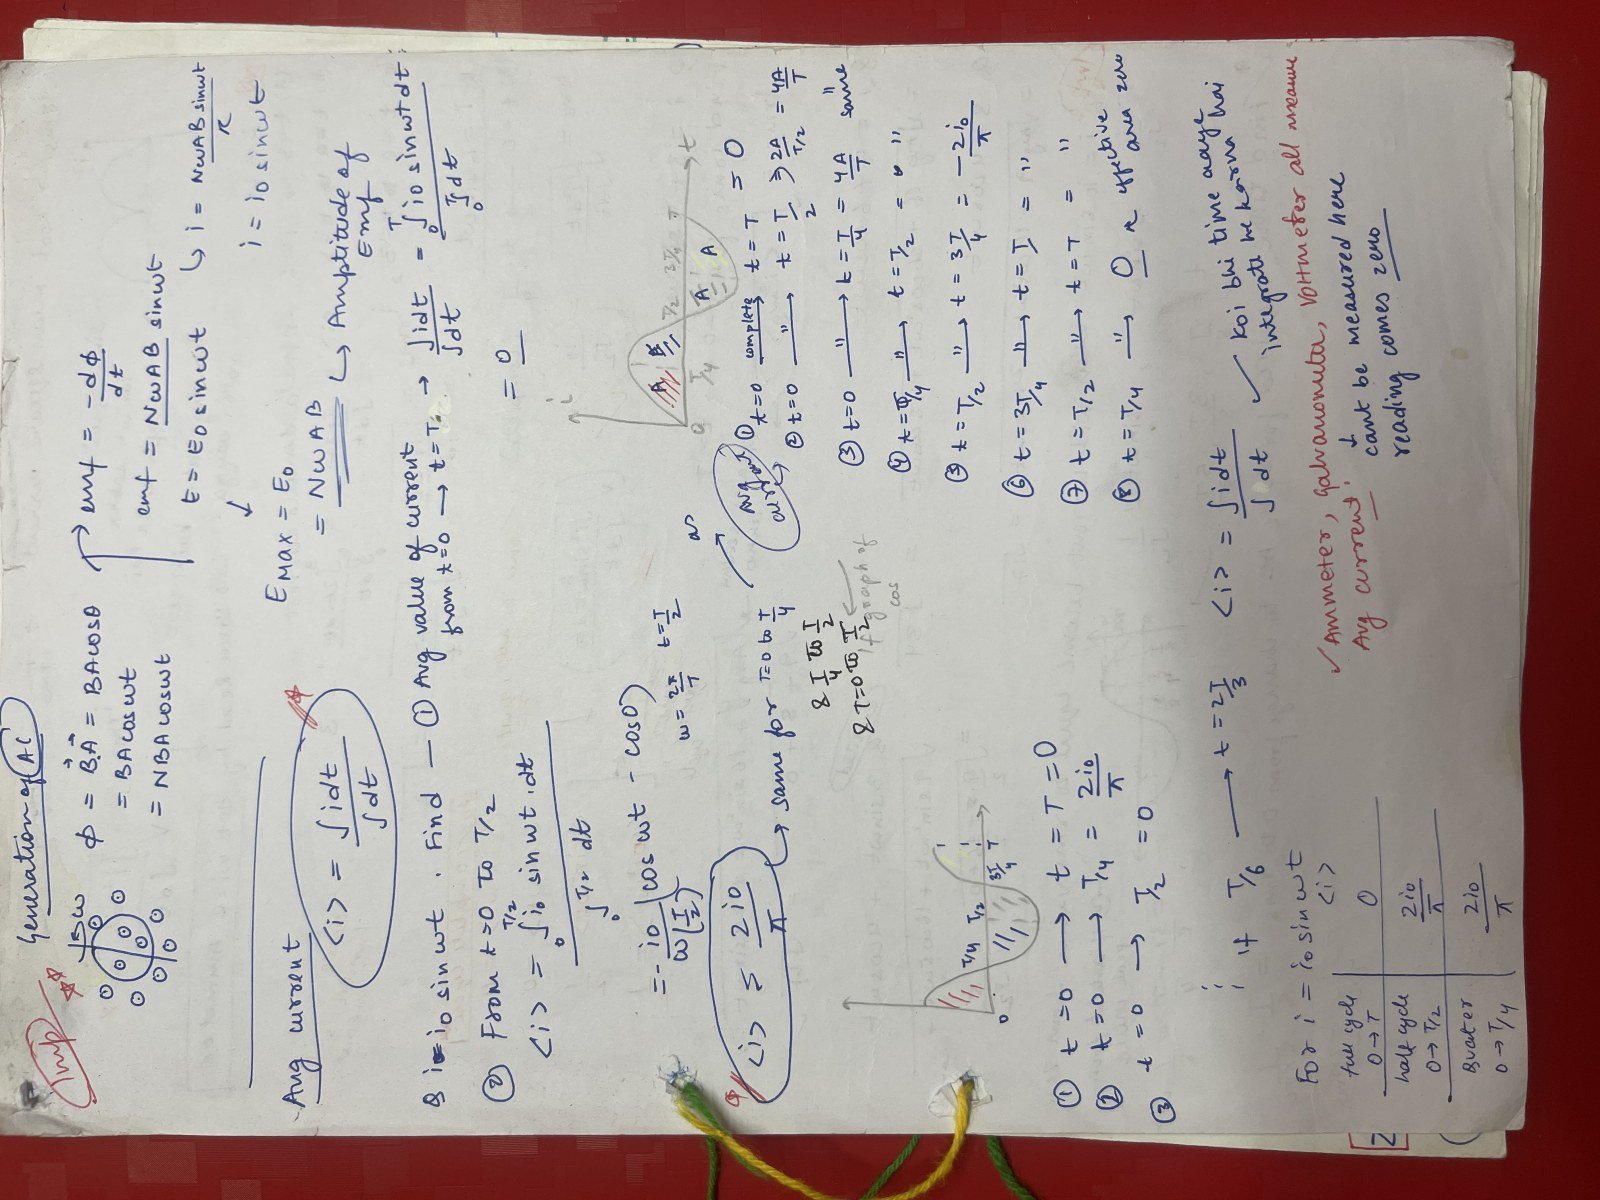 Imp
Generation of AC
ω
ϕ = B⃗.A⃗ = BAcosθ
= BAcosωt
= NBAcosωt
emf = -dϕ/dt
emf = NωAB sinωt
E = E0 sinωt ↳ i = NωAB sinωt/R
i = i0 sinωt
EMAX = E0
= NωAB ↳ Amptitude of Emf
Avg current
<i> = ∫idt/∫dt
Q i = i0 sinωt . Find — ① Avg value of current from t=0 → t=T → ∫idt/∫dt = ∫₀ᵀ i0 sinωt dt/∫₀ᵀ dt
= 0
② From t=0 to T/2
<i> = ∫₀^T/2 i0 sinωt .dt / ∫₀^T/2 dt
= - i0/ω(T/2) (cosωt - cos0)
ω = 2π/T t=T/2
<i> = 2i0/π
↳ same for T=0 to T/4
& T/4 to T/2
& T=0 to T/2
graph of cos
i
A A A A
0 T/4 T/2 3T/4 T t
Avg current
① t=0 complete→ t=T = 0
② t=0 "→ t=T/2 ⇒ 2A/T/2 = 4A/T
③ t=0 "→ t=T/4 = 4A/T same
④ t=T/4 "→ t=T/2 = " "
⑤ t=T/2 "→ t=3T/4 = -2i0/π
⑥ t=3T/4 "→ t=T = "
⑦ t=T/2 "→ t=T = "
⑧ t=T/4 " → 0 effective area zero
0 T/4 T/2 3T/4 T
① t=0 → t=T=0
② t=0 → T/4 = 2i0/π
③ t=0 → T/2 = 0
if T/6 → t=2T/3 <i> = ∫idt/∫dt
koi bhi time aaye integrate he karna hai
For i = i0 sinωt
<i>
full cycle 0→T 0
half cycle 0→T/2 2i0/π
Quater 0→T/4 2i0/π
✓ Ammeter, galvanometer, voltmeter all measure
Avg current
↓
cant be measured here
reading comes zero